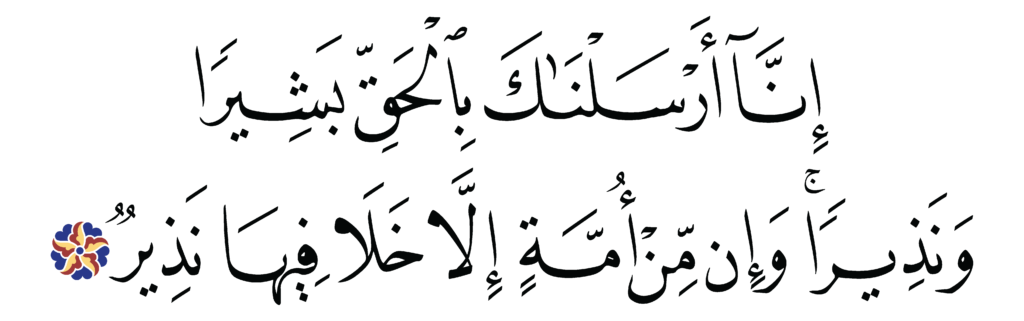 إِنَّآ أَرْسَلْنَـٰكَ بِٱلْحَقِّ بَشِيرًا
وَنَذِيرًا ۚ وَإِن مِّنْ أُمَّةٍ إِلَّا خَلَا فِيهَا نَذِيرٌ